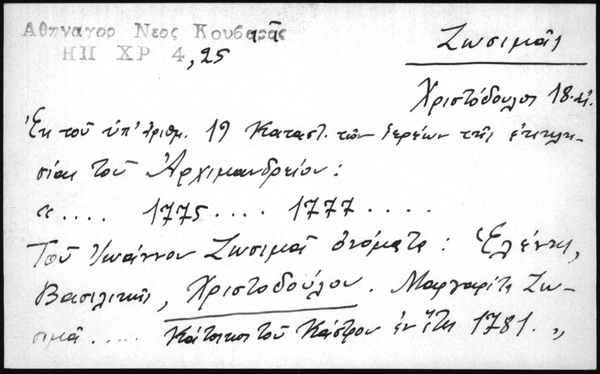 Αθηναγορ Νεος Κουβαρᾶς
ΗΠ ΧΡ 4,25
Ζωσιμᾶς
Χριστόδουλος 18 αἰ.
Ἐκ τοῦ ὑπ' ἀριθμ. 19 Καταστ. τῶν ἱερέων τῆς ἐκκλη-
σίας τοῦ Ἀρχιμανδρείου:
«.... 1775 .... 1777 ....
Τοῦ Ἰωάννου Ζωσιμᾶ ὀνόματα: Ἑλένης,
Βασιλικῆς, Χριστοδούλου. Μαργαρίτη Ζω-
σιμᾶ ..... Κάτοικοι τοῦ Κάστρου ἐν ἔτει 1781. »